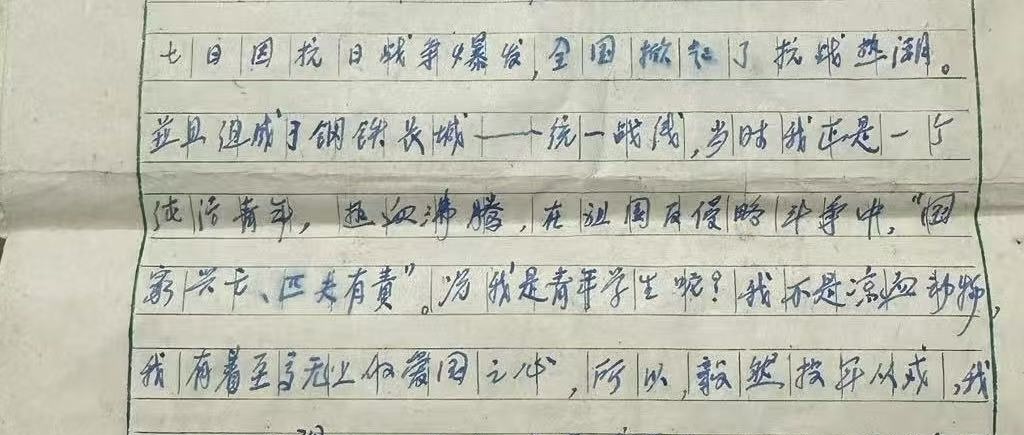 七日因抗日战争爆发,全国掀起了抗战热潮。
並且组成了钢铁长城——统一战线,当时我正是一个
纯洁青年,热血沸腾,在祖国反侵略斗争中,“国
家兴亡、匹夫有責”。况我是青年学生呢?我不是凉血动物,
我有着至高无上的爱国之心,所以,毅然投军从戎,我